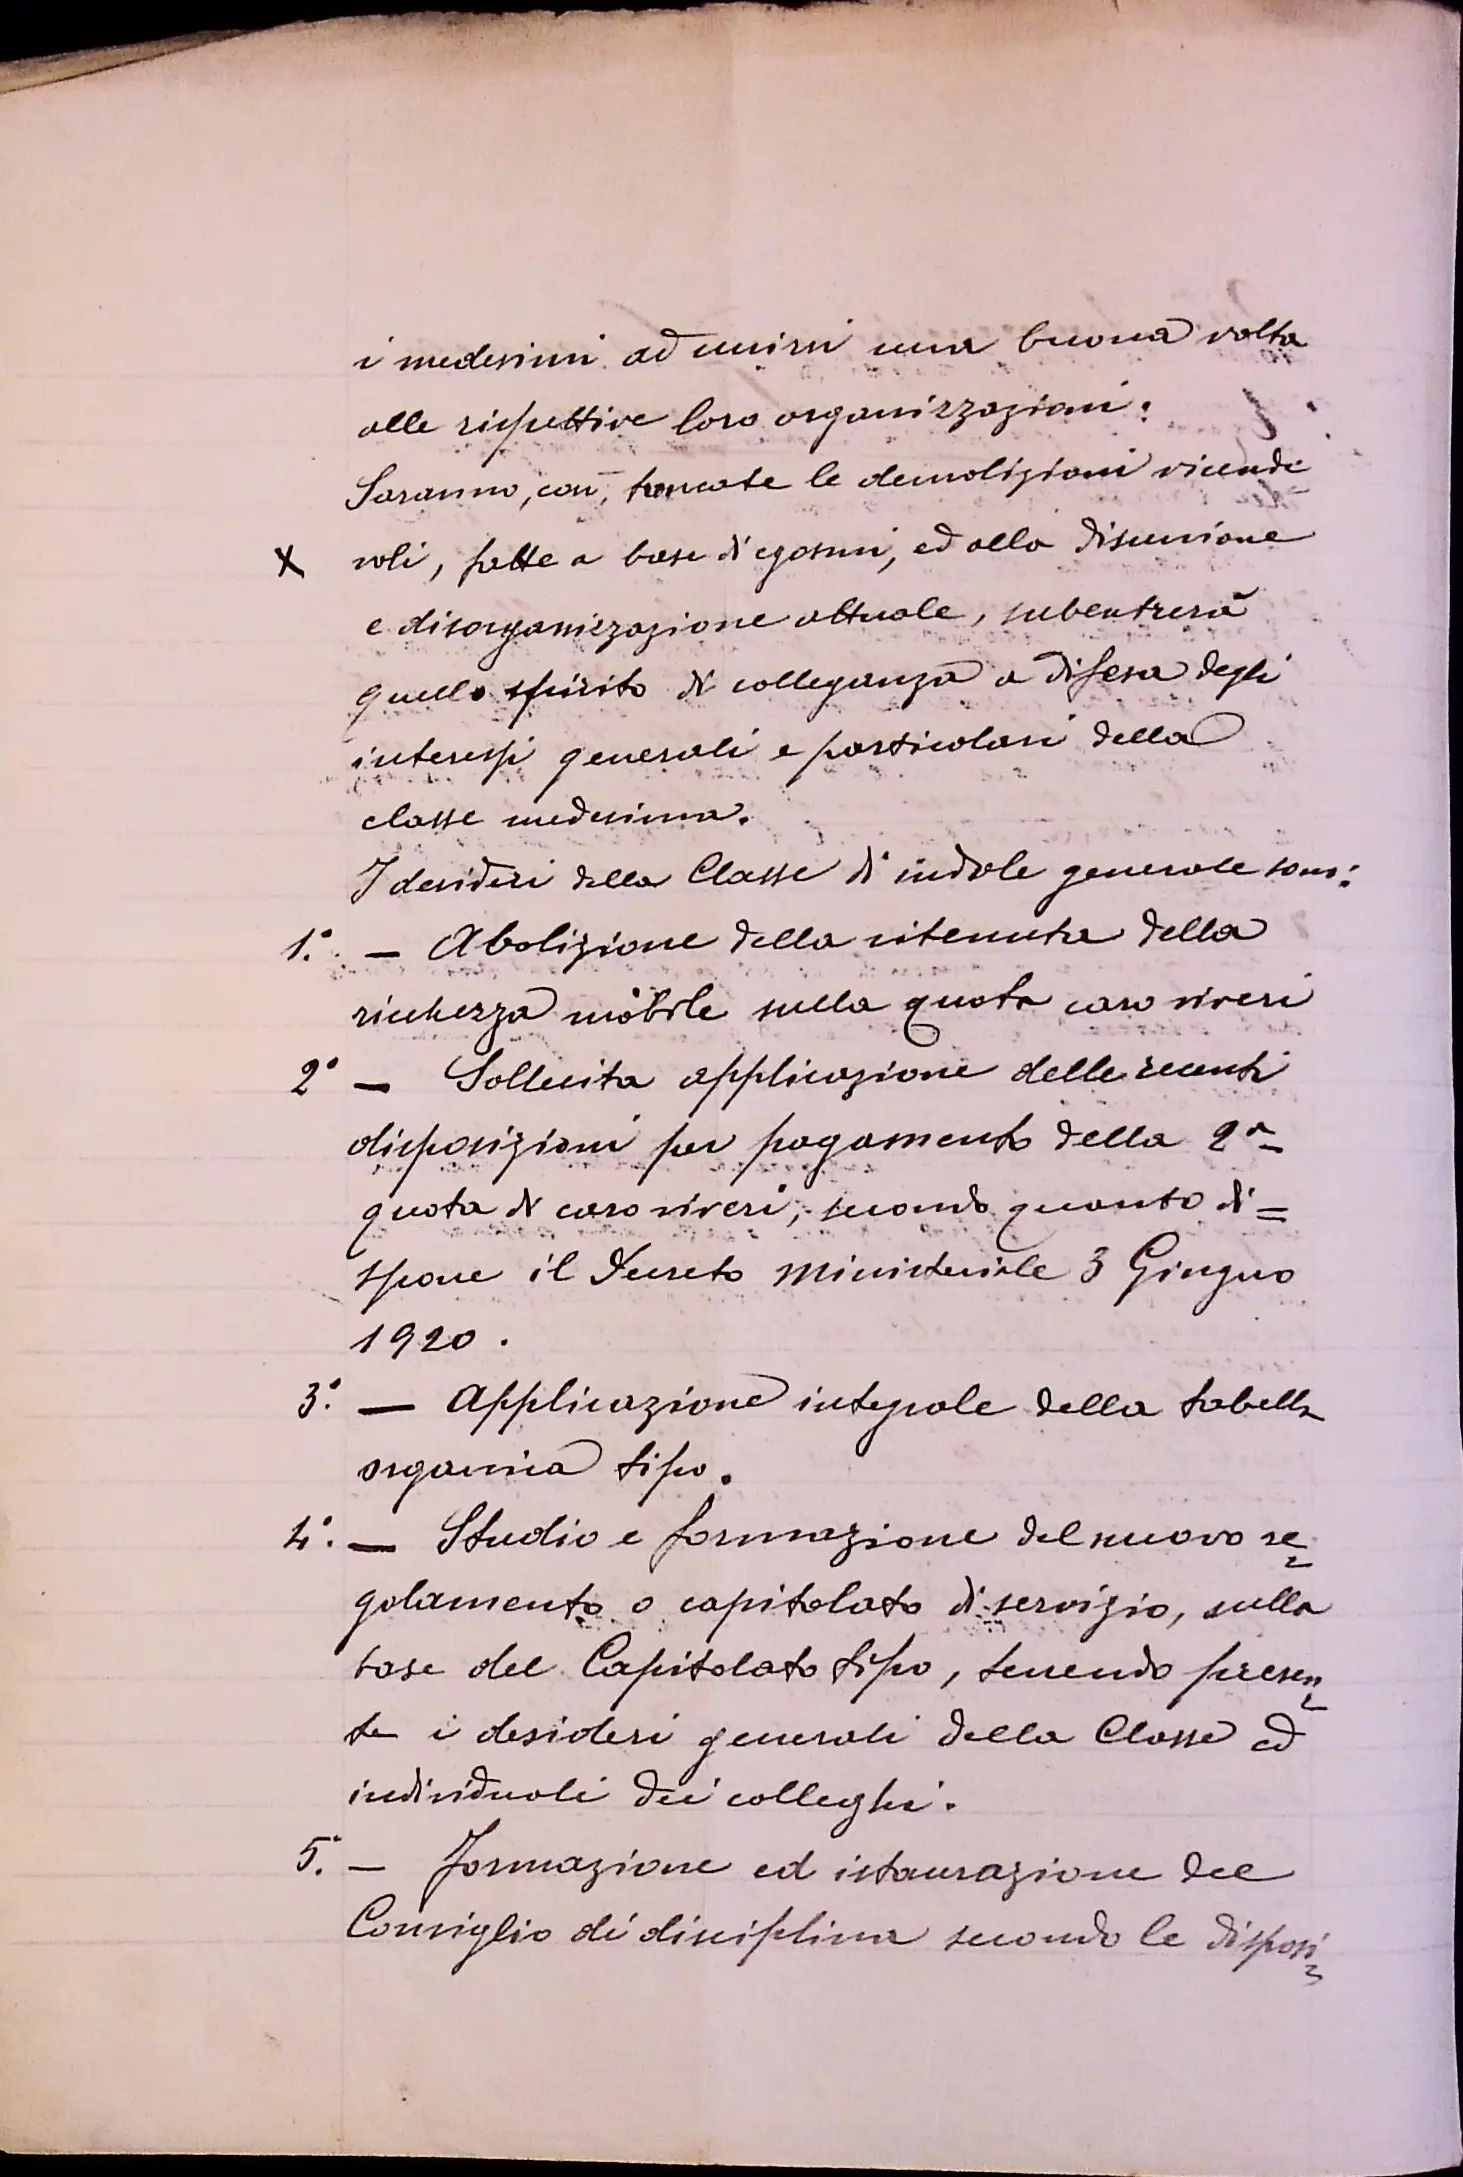 i medesimi ad unirsi una buona volta
alle rispettive loro organizzazioni.
Saranno, così, troncate le demolizioni vicende
X voli, fatte a base di egoismi, ed alla disunione
e disorganizzazione attuale, subentrerà
quello spirito di colleganza a difesa degli
interessi generali e particolari della
classe medesima.
I desideri della Classe di indole generale sono:
1.° — Abolizione della ritenuta della
ricchezza mobile sulla quota caro viveri
2° — Sollecita applicazione delle recenti
disposizioni per pagamento della 2a
quota di caro viveri, secondo quanto di=
spone il Decreto Ministeriale 3 Giugno
1920.
3.° — Applicazione integrale della tabella
organica tipo.
4.° — Studio e formazione del nuovo re=
golamento o capitolato di servizio, sulla
base del Capitolato tipo, tenendo presen=
te i desideri generali della Classe ed
individuali dei colleghi.
5.° — Formazione ed istaurazione del
Consiglio di disciplina secondo le disposi=